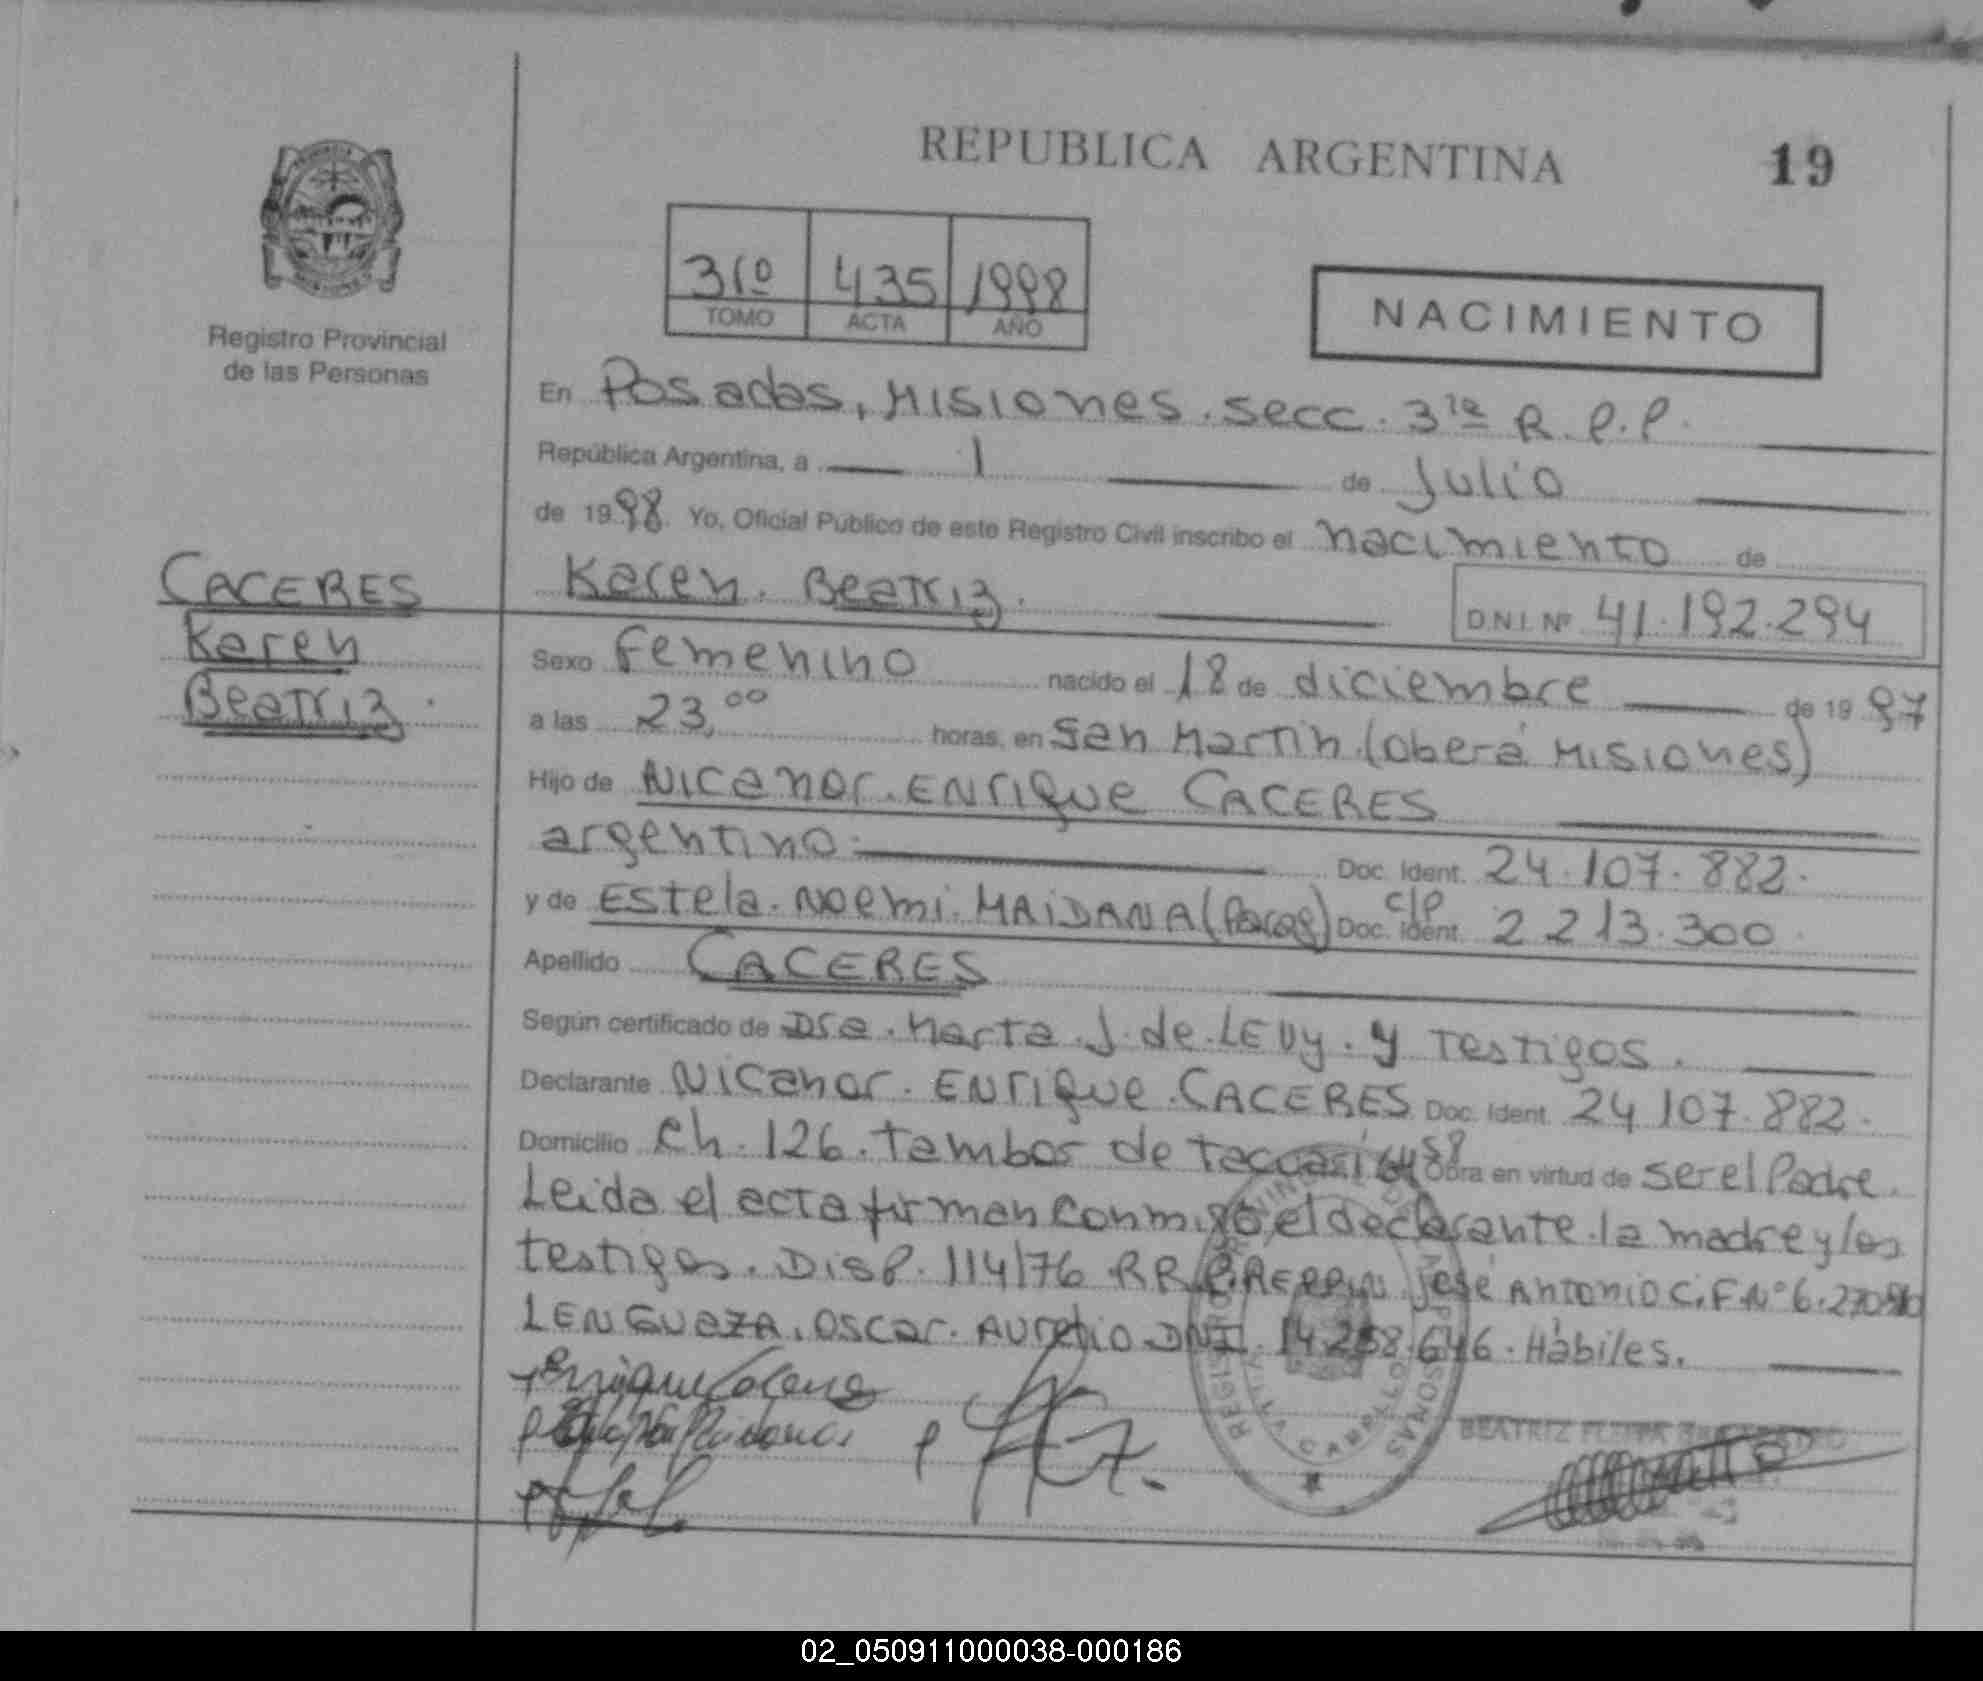 REPUBLICA ARGENTINA 19
Registro Provincial
de las Personas
31º 435 1998
TOMO ACTA AÑO
NACIMIENTO
En Posadas, Misiones. secc. 3ra R.P.P.
República Argentina, a 1 de Julio
de 1998. Yo, Oficial Público de este Registro Civil inscribo el nacimiento de
Karen. Beatriz. D.N.I. Nº 41.192.294
CACERES
Karen
Beatriz.
Sexo Femenino nacido el 18 de diciembre de 1997
a las 23,00 horas, en San Martin. (oberá Misiones)
Hijo de Nicanor. Enrique CACERES
argentino. Doc. Ident. 24.107.882.
y de Estela. Noemi. MAIDANA Doc. Ident. c/p 2213.300.
Apellido CACERES
Según certificado de Dra. Marta. J. de. LEVY. y Testigos.
Declarante Nicanor. Enrique. CACERES Doc. Ident. 24107.882.
Domicilio Ch. 126. Tambor de Tacuarí 6458 Obra en virtud de ser el Padre.
Leida el acta firman conmigo, el declarante. la madre y los
testigos. Disp. 114/76 José Antonio C.I.F. Nº 6.
LENGUAZA, Oscar. Aurelio DNI. 14.258.646. Hábiles.
BEATRIZ
02_050911000038-000186